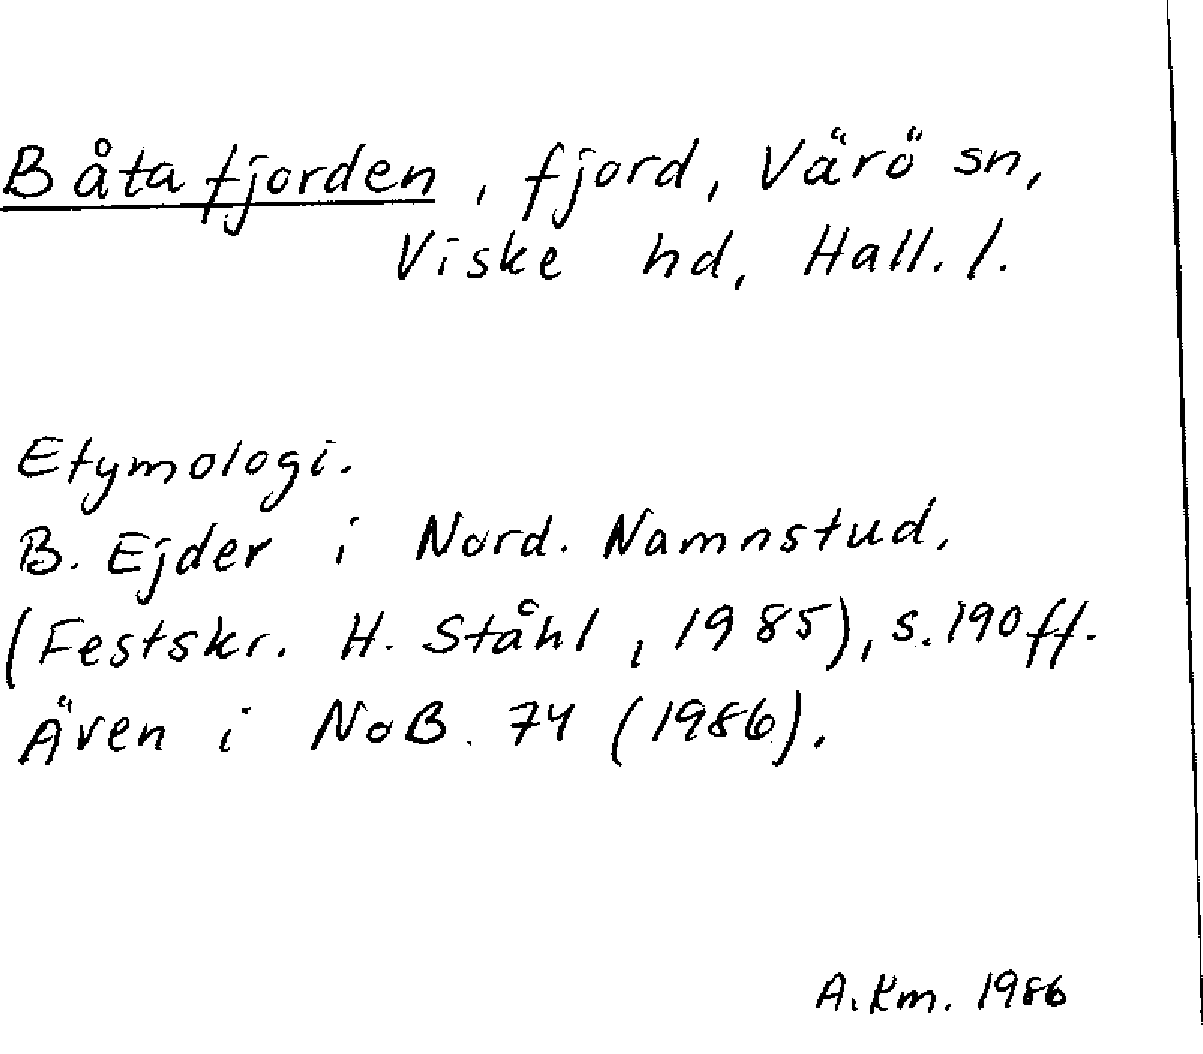 Båtafjorden, fjord, Värö sn,
Viske hd, Hall. l.
Etymologi.
B. Ejder i Nord. Namnstud.
(Festskr. H. Ståhl, 1985), s. 190 ff.
Även i NoB. 74 (1986).
A. Km. 1986